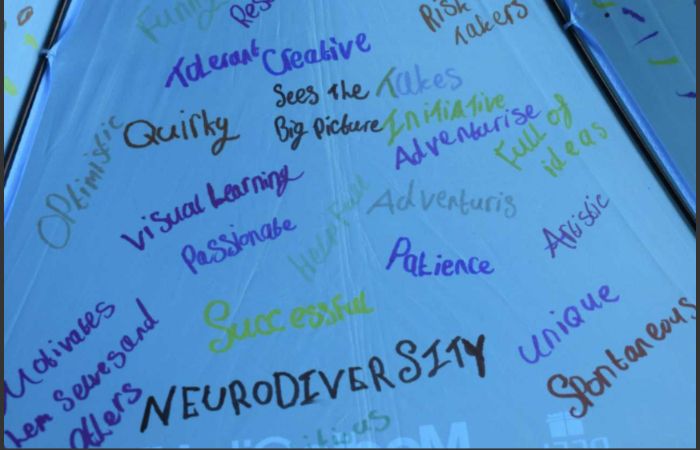 Funny
Risk
Takers
Tolerant
Creative
Sees the
Big Picture
Takes
Initiative
Quirky
Adventurise
Full of
ideas
Optimistic
Visual Learning
Adventuris
Helpfull
Passionate
Artistic
Patience
Successful
Unique
Motivates
Selves and
others
NEURODIVERSITY
Spontaneous